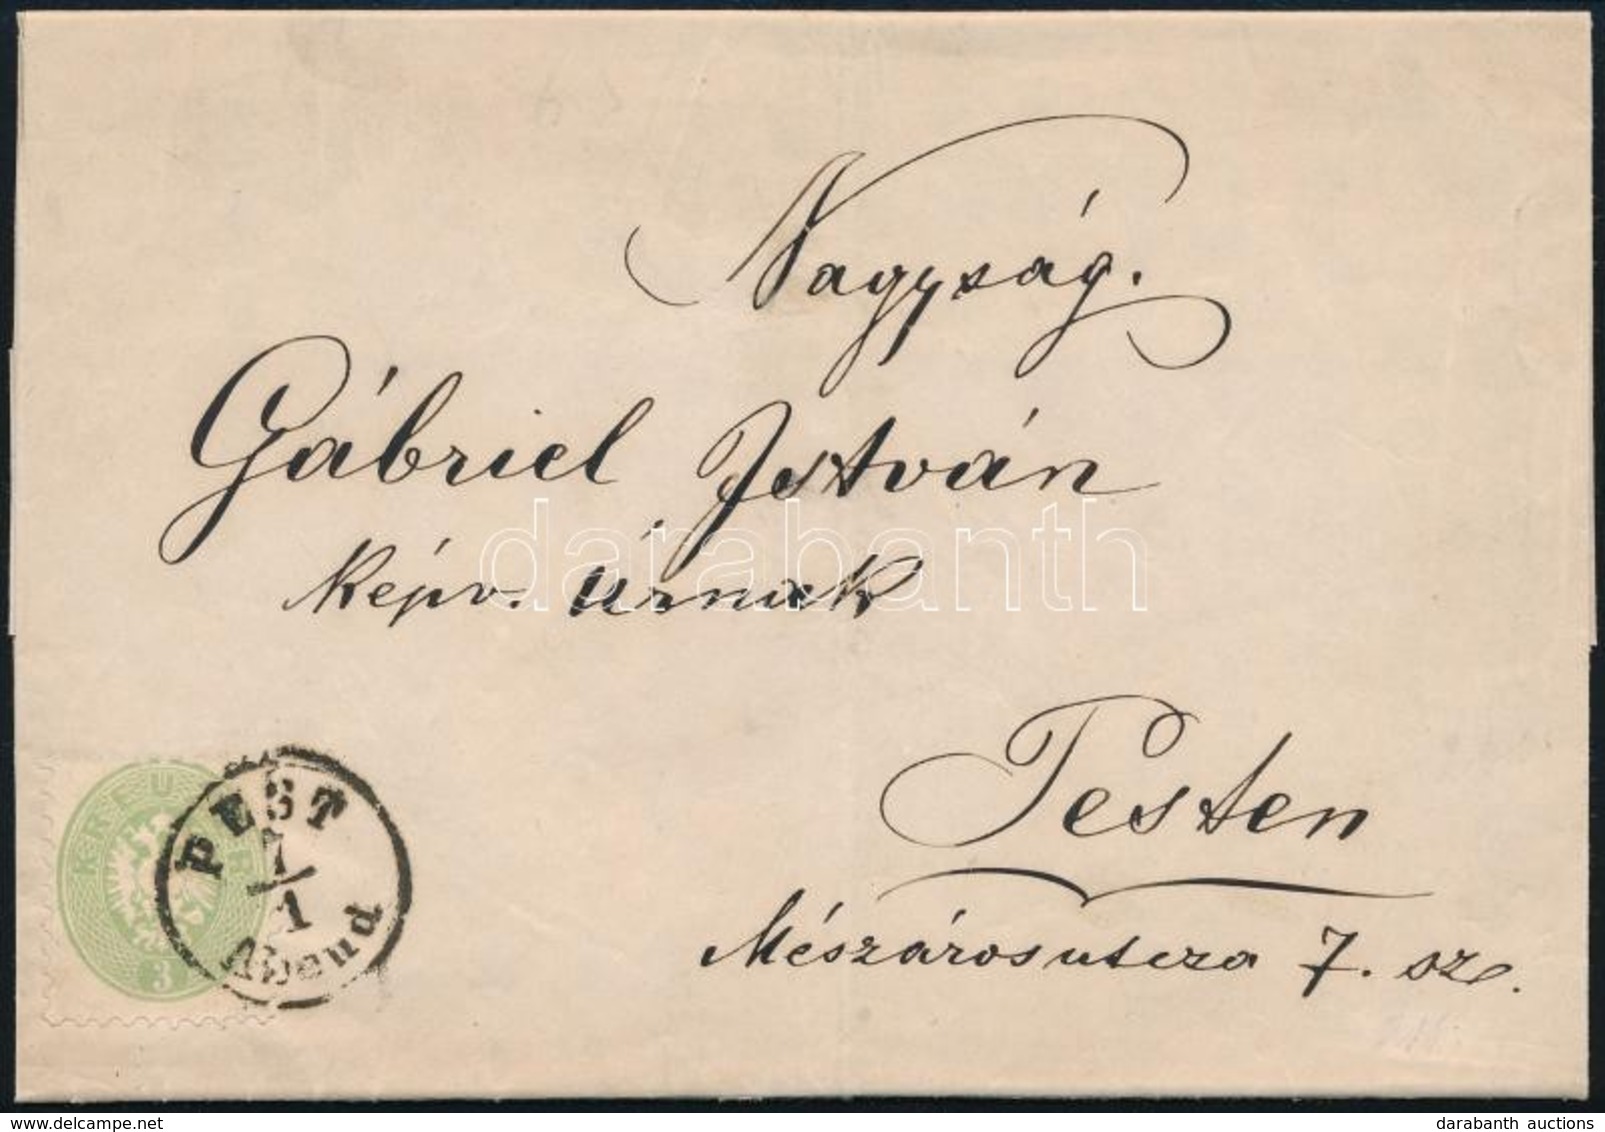 Nagyság.
Gábriel István
képv. Úrnak
Pesten
Mészáros utcza 7. sz.
KREUZER
3
PEST
7/1
Abend
darabanth
delcampe.net
darabanth auctions